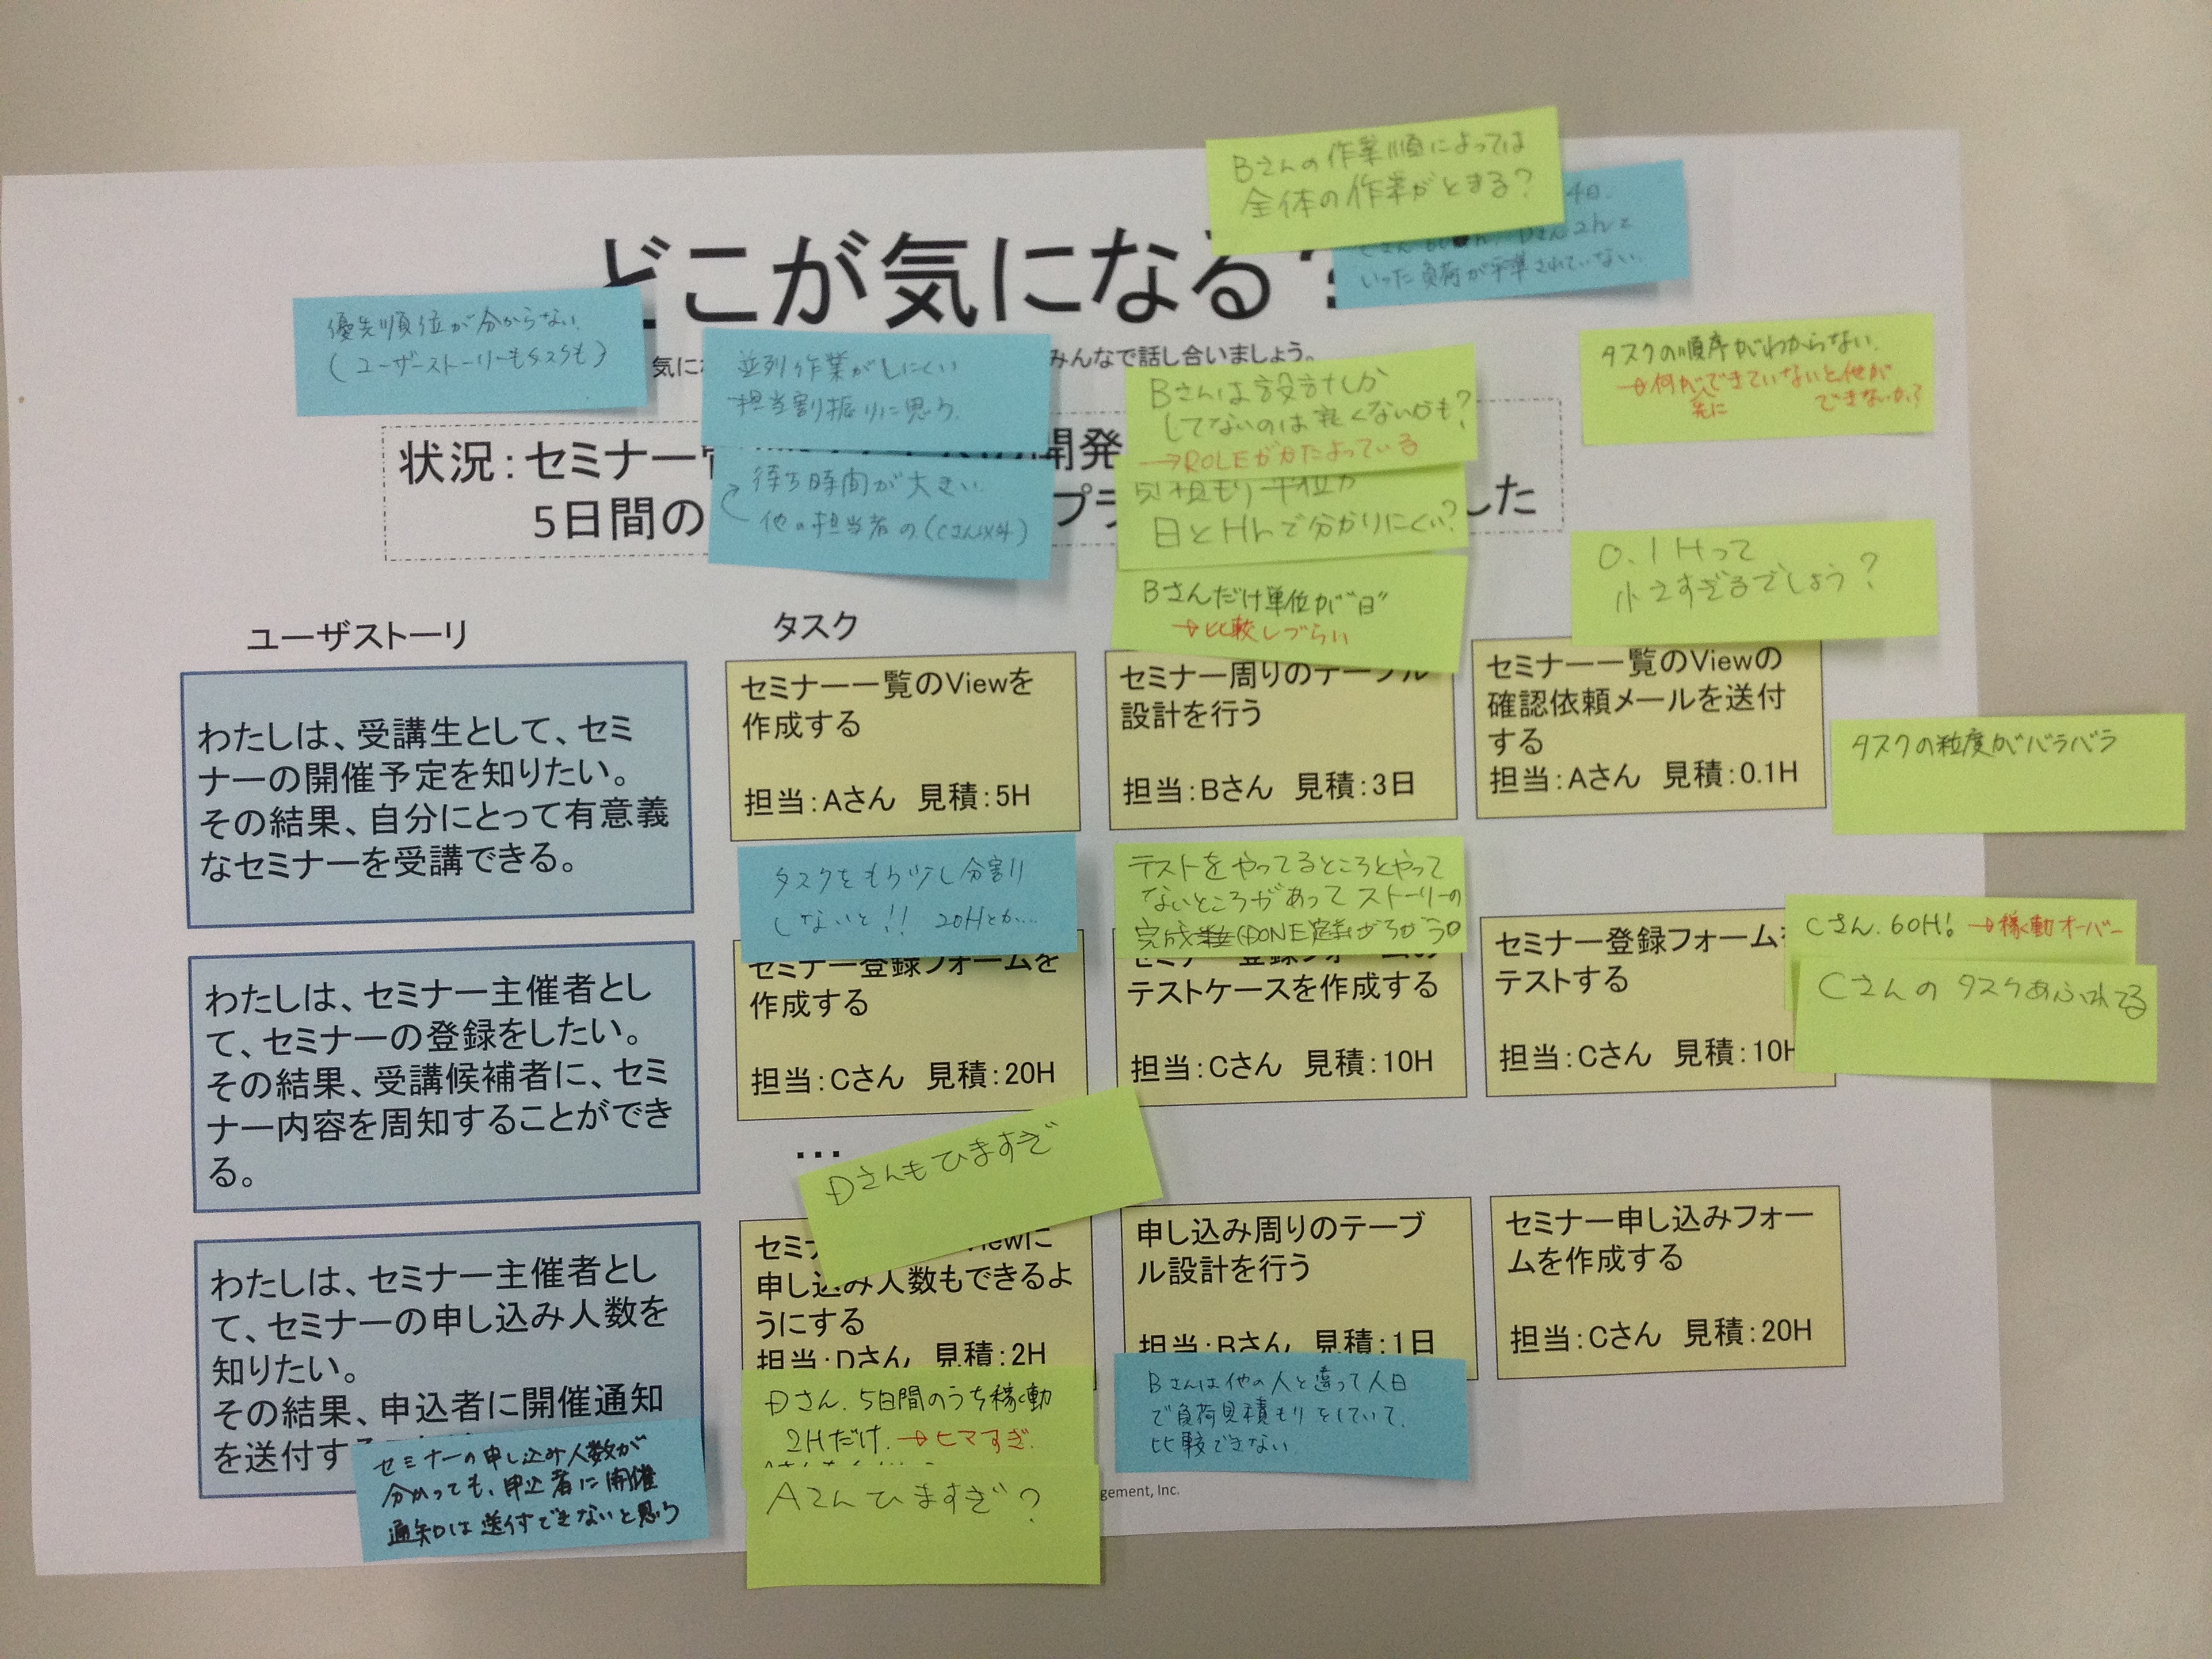 Bさんの作業順によっては
全体の作業がとまる?
4日.
Dさん2hと
いった負荷が平準されていない.
どこが気になる?
優先順位が分からない.
(ユーザーストーリーもタスクも)
気に
みんなで話し合いましょう。
並列作業がしにくい
担当割振りに思う.
Bさんは設計しか
してないのは良くないかも?
→ROLEがかたよっている
タスクの順序がわからない.
→何ができていないと他が
先に
できないか?
状況:セミナー
開発
5日間の
プラ
した
待ち時間が大きい.
他の担当者の(Cさん以外)
見積もり単位が
日とHrで分かりにくい?
Bさんだけ単位が"日"
→比較しづらい
0.1Hって
小さすぎるでしょう?
ユーザストーリ
タスク
わたしは、受講生として、セミ
ナーの開催予定を知りたい。
その結果、自分にとって有意義
なセミナーを受講できる。
セミナー一覧のViewを
作成する
担当:Aさん 見積:5H
セミナー周りのテーブル
設計を行う
担当:Bさん 見積:3日
セミナー一覧のViewの
確認依頼メールを送付
する
担当:Aさん 見積:0.1H
タスクの粒度がバラバラ
タスクをもう少し分割
しないと!! 20Hとか....
テストをやってるところとやって
ないところがあってストーリーの
完成(DONE定義)がちがう。
Cさん.60H! →稼働オーバー
Cさんの タスクあふれてる
わたしは、セミナー主催者とし
て、セミナーの登録をしたい。
その結果、受講候補者に、セミ
ナー内容を周知することができ
る。
セミナー登録フォームを
作成する
担当:Cさん 見積:20H
セミナー登録フォームの
テストケースを作成する
担当:Cさん 見積:10H
セミナー登録フォームを
テストする
担当:Cさん 見積:10H
...
Dさんもひますぎ
わたしは、セミナー主催者とし
て、セミナーの申し込み人数を
知りたい。
その結果、申込者に開催通知
を送付す
セミナーの申し込み人数が
分かっても、申込者に開催
通知は送付できないと思う
セミ
Viewに
申し込み人数もできるよ
うにする
担当:Dさん 見積:2H
申し込み周りのテーブ
ル設計を行う
担当:Bさん 見積:1日
セミナー申し込みフォー
ムを作成する
担当:Cさん 見積:20H
Dさん.5日間のうち稼働
2Hだけ.→ヒマすぎ.
Aさんひますぎ?
Bさんは他の人と違って人日
で負荷見積もりをしていて.
比較できない.
gement, Inc.